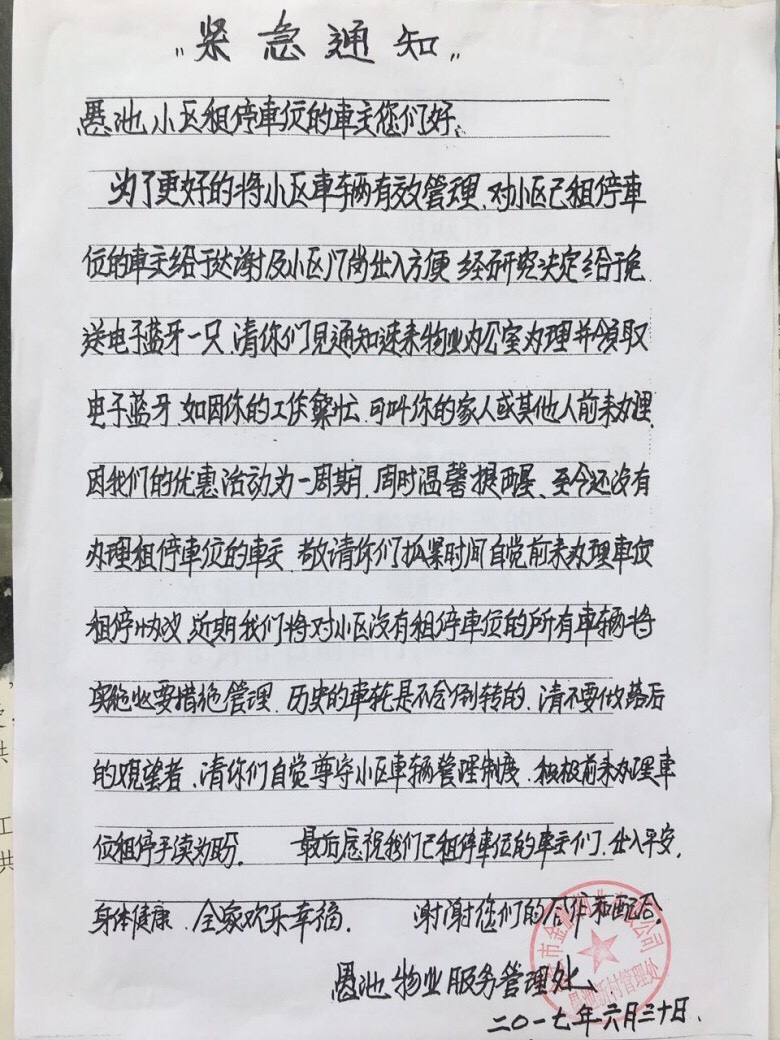 "紧急通知"
愚池小区租停車位的車主您们好、
为了更好的将小区車辆有效管理、对小区已租停車
位的車主给于达谢及小区门岗出入方便 经研究决定给于免
送电子蓝牙一只、请你们见通知速来物业办公室办理并领取
电子蓝牙、如因你的工作繁忙、可叫你的家人或其他人前来办理、
因我们的优惠活动为一周期、同时温馨提醒、至今还没有
办理租停車位的車主、敬请你们抓紧时间自觉前来办理車位
租停协议、近期我们将对小区没有租停車位的所有車辆将
实施必要措施管理、历史的車轮是不会倒转的、请不要做落后
的观望者、请你们自觉尊守小区車辆管理制度、积极前来办理車
位租停手续为盼. 最后恳祝我们已租停車位的車主们、出入平安、
身体健康、全家欢乐幸福. 谢谢您们的合作和配合.
愚池物业服务管理处、
二〇一七年六月三十日.
市金 业 有限公司
愚池新村管理处